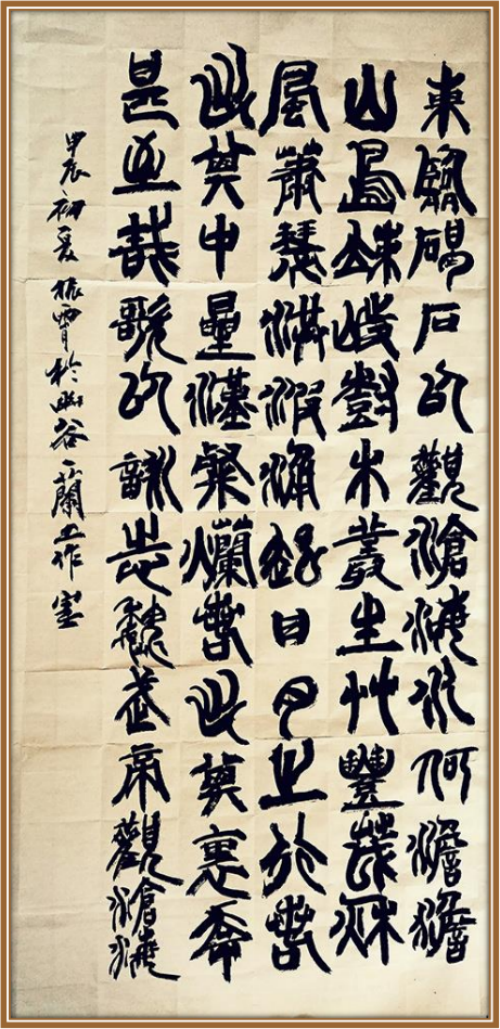 東臨碣石以觀滄海水何澹澹
山島竦峙樹木叢生艸豐茂秋
風蕭瑟洪波涌起日月之行若
出其中星漢粲爛若出其裏幸
甚至哉歌以詠志魏武帝觀滄海
甲辰初夏振霄於幽谷一蘭工作室